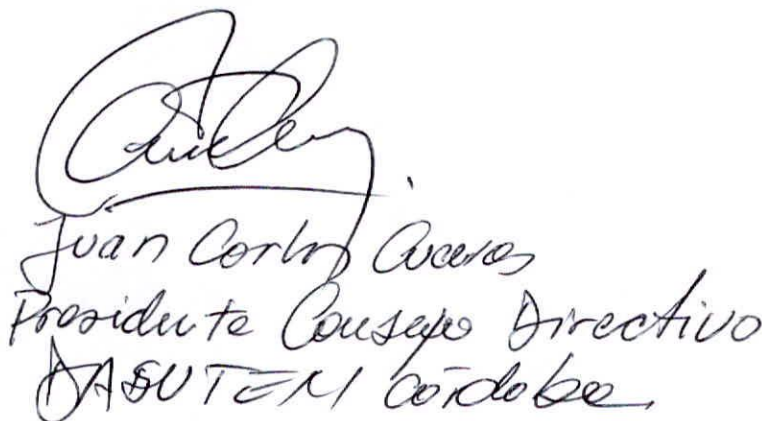 Juan Carlos
Presidente Consejo Directivo
DASUTEN Córdoba